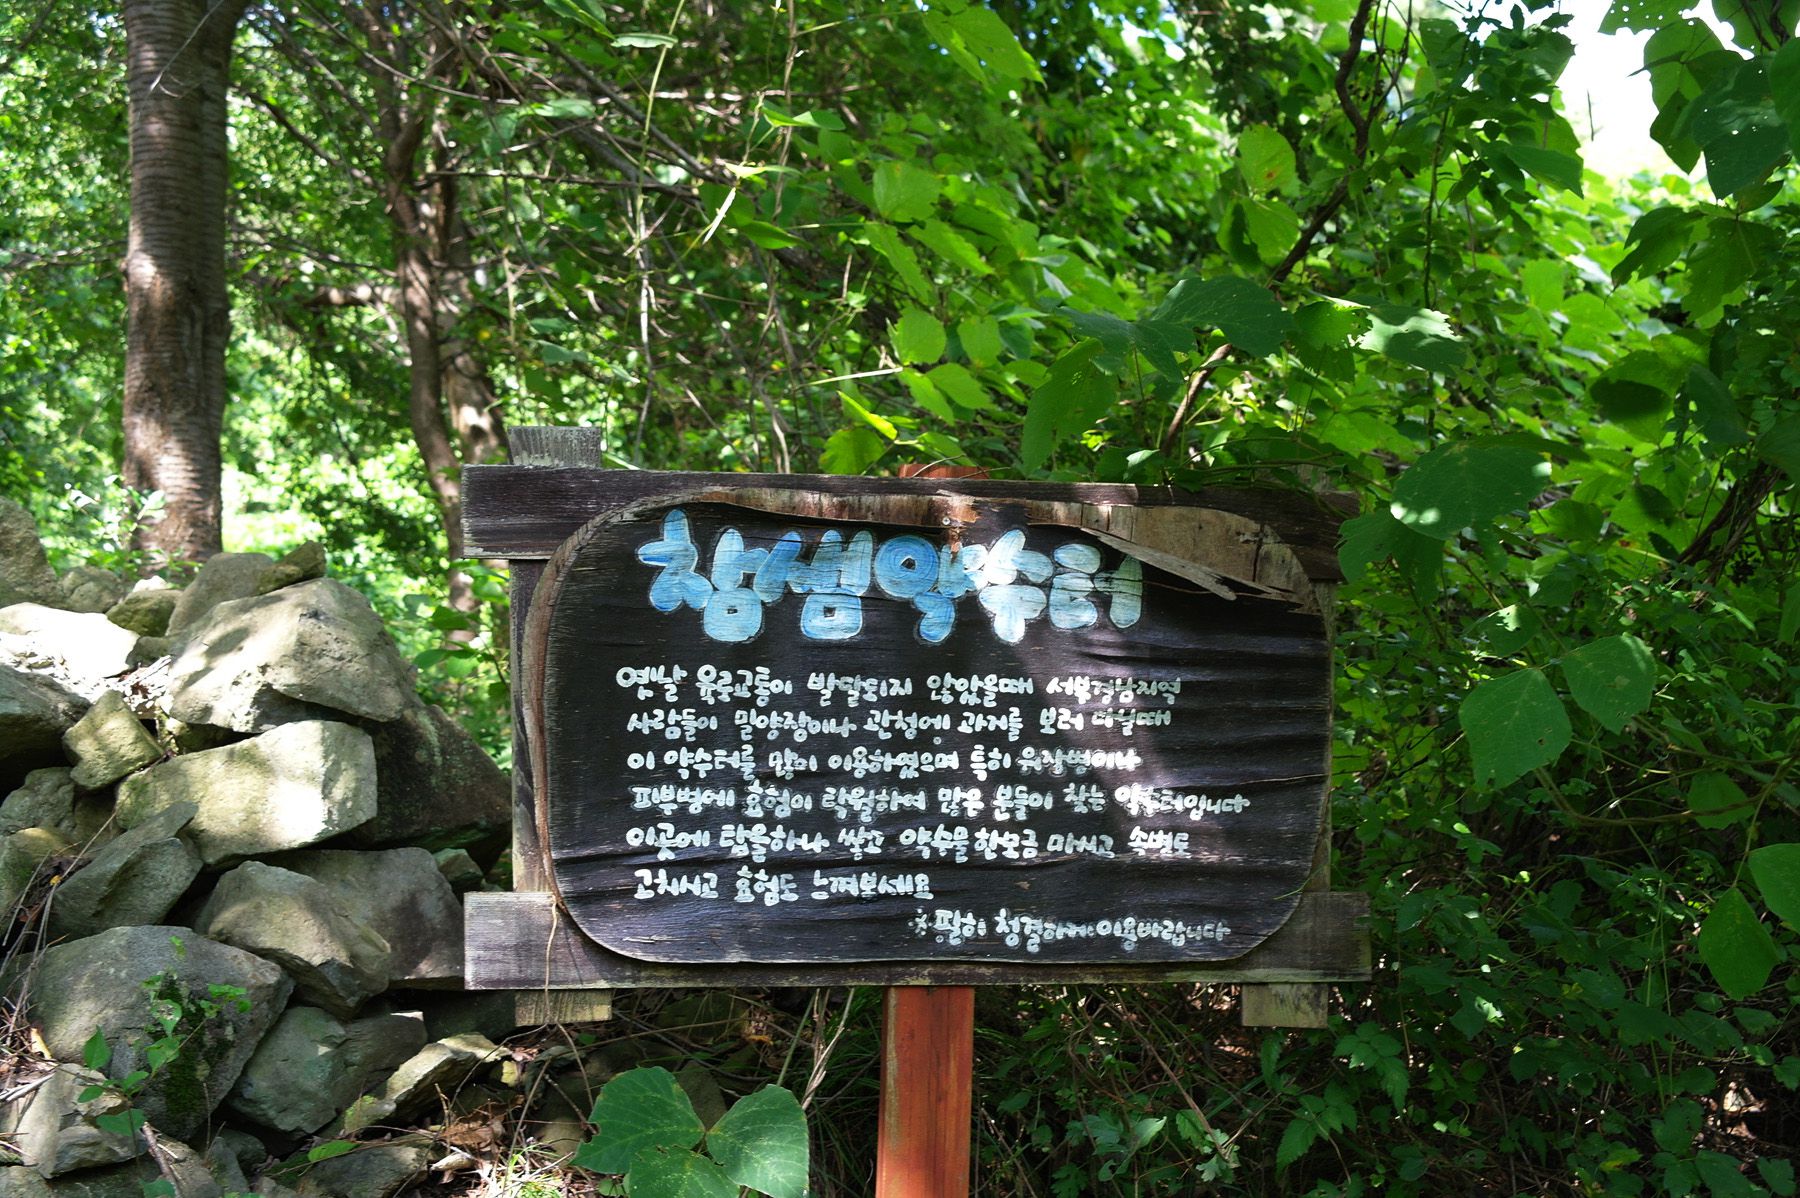 참샘약수터
옛날 육로교통이 발달되지 않았을때 서부경남지역
사람들이 밀양장이나 관청에 과거를 보러 다닐때
이 약수터를 많이 이용하였으며 특히 위장병이나
피부병에 효험이 탁월하여 많은 분들이 찾는 약수터입니다
이곳에 탑을하나 쌓고 약수물한모금 마시고 속병도
고치시고 효험도 느껴보세요
※필히 청결하게이용바랍니다